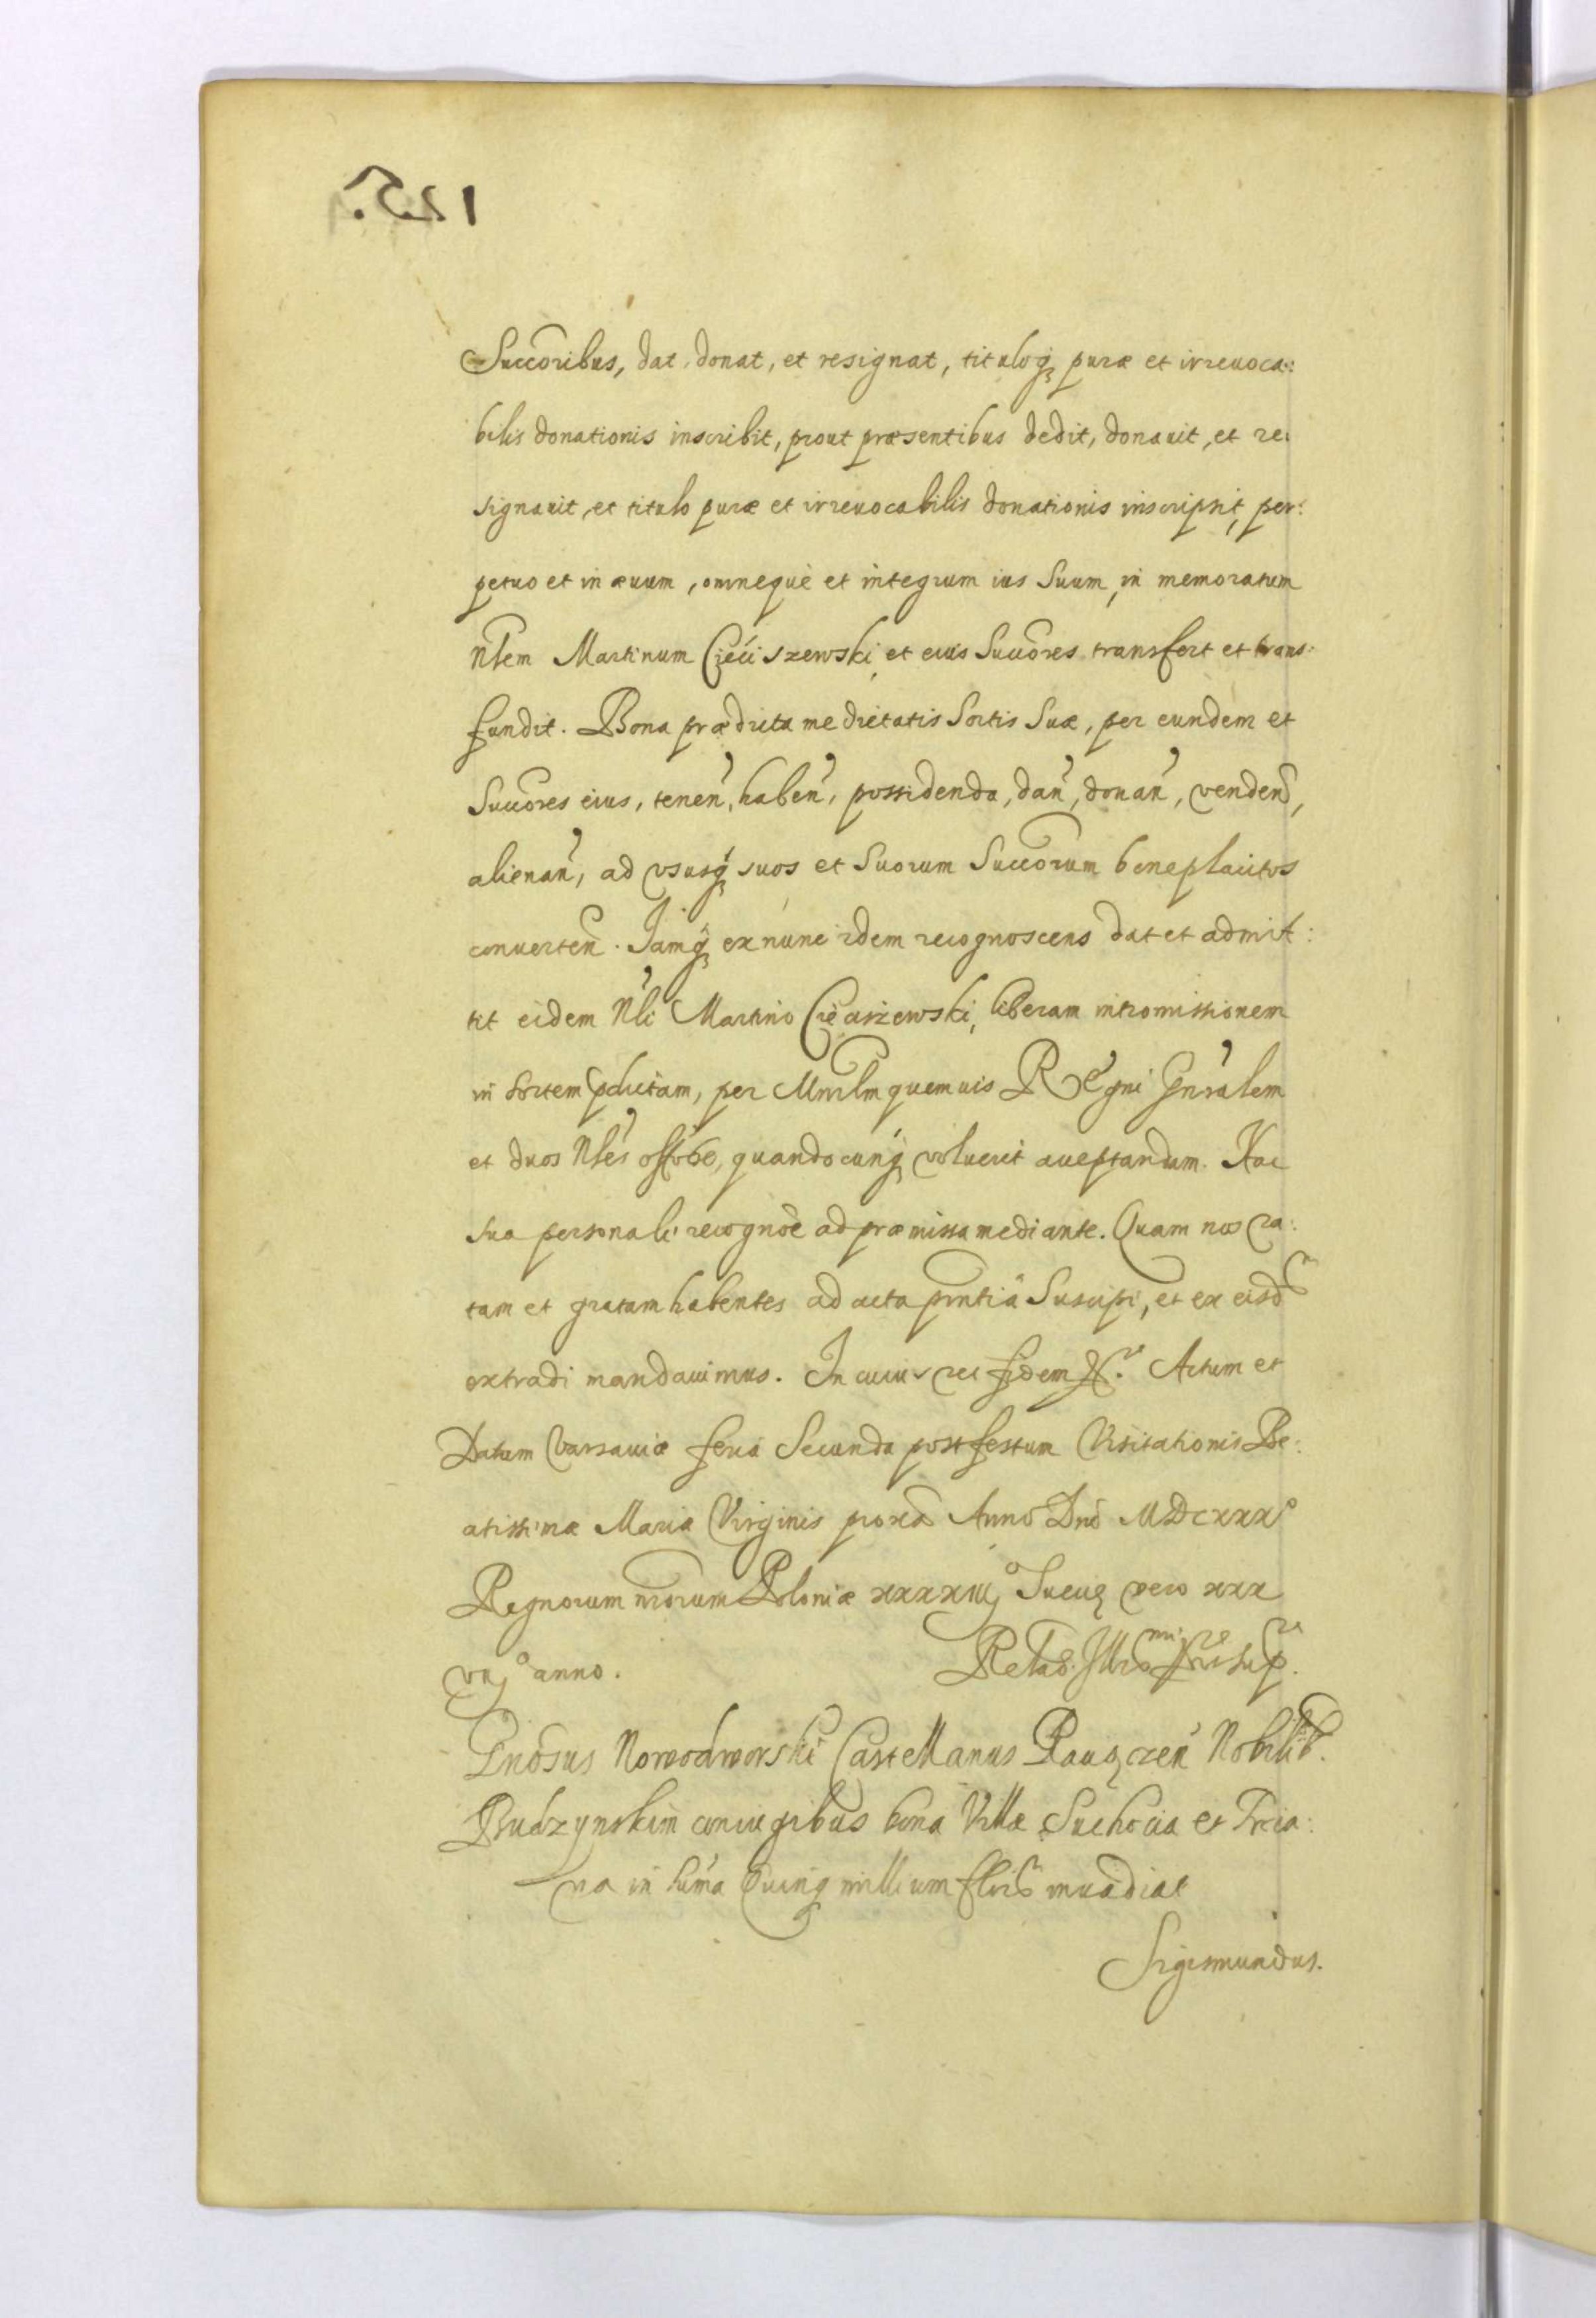 125.
Succoribus, dat, donat, et resignat, tituloq puræ et irreuoca:
bilis donationis inscribit, prout præsentibus dedit, donauit, et re:
signauit, et titulo puræ et irreuocabilis donationis inscripsit, per:
petuo et in æuum, omnequè et integrum ius Suum, in memoratum
Nlem Martinum Ciećiszewski, et eius Succores transfert et trans:
fundit. Bona prædicta medietatis Sortis Suæ, per eundem et
Succores eius, tenen, haben, possidenda, dan, donan, venden,
alienan, ad vsusq suos et Suorum Succorum beneplacitos
conuerten. Iamq ex nunc idem recognoscens dat et admit:
tit eidem Nli Martino Cieciszewski, liberam intromissionem
in Sortem pdictam, per Mnrlm quemuis Regni Gnralem
et duos Nles quandocunq voluerit acceptandum. Hac
sua personali recognoe ad præmissa mediante. Quam nos ra:
tam et gratam habentes ad acta pntia Suscipi, et ex eisd
extradi mandauimus. In cuius rei fidem Actum et
Datum Varsauiæ feria Secunda post festum Visitationis Be:
atissimæ Mariæ Virginis proxa Anno Dni MDCXXX
Regnorum nrorum Poloniæ xxxxiij Suecię vero xxx
vij anno.
Gnosus Nowodworski Castellanus Nobilib.
Budzynskim coniugibus bona Villæ Suchocia et
na in Suma Quinq millium inuadiat
Sigismundus.